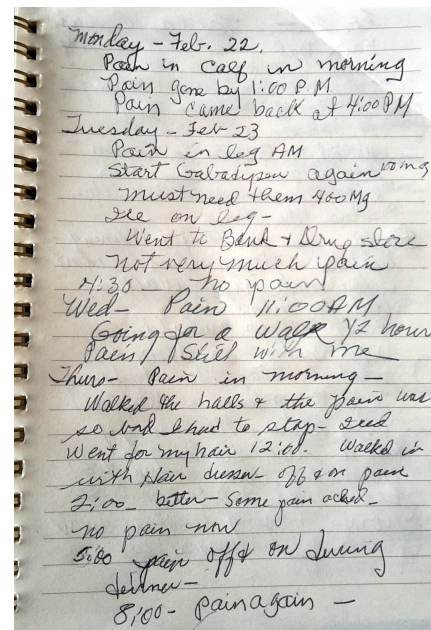 Monday - Feb. 22.
Pain in calf in morning
Pain gone by 1:00 P.M.
Pain came back at 4:00 PM
Tuesday - Feb 23
Pain in leg AM
Start Gabadypen again 100 mg
Must need them 400 Mg
Ice on leg -
Went to Bank & Drug store
not very much pain
4:30 no pain
Wed - Pain 11:00 AM
Going for a Walk 1/2 hour
Pain Still with me
Thurs - Pain in morning -
Walked the halls & the pain was
so bad I had to stop - Iced
Went for my hair 12:00. Walked in
with Hair dresser off & on pain
2:00 better - Some pain ached -
no pain now
5:00 pain off & on during
dinner -
8:00 - Pain again -